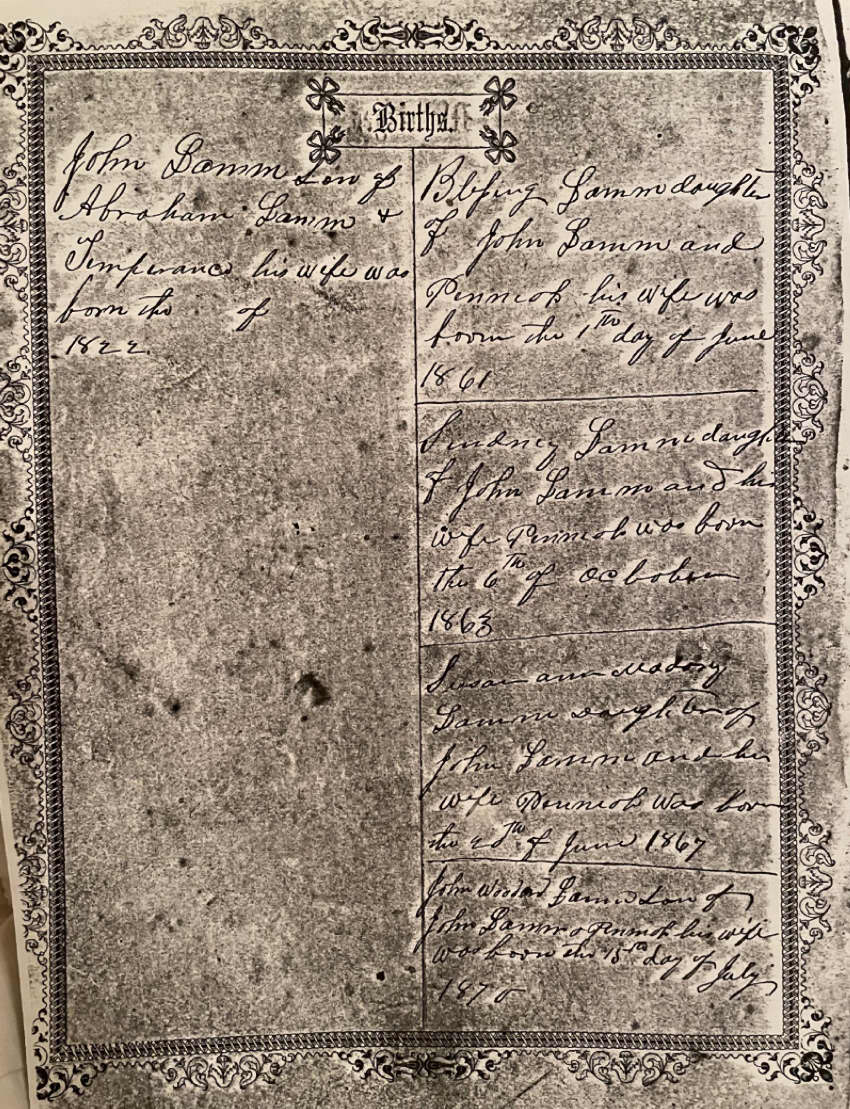 Births.
John Lamm Son of
Abraham Lamm &
Temperance his wife was
born the of
1822.
Lamm daughter
of John Lamm and
Penniah his wife was
boorn the 1th day of June
1861
Lamm daughter
of John Lamm and his
wife Penniah was born
the 6th of
1863
Susan ann
Lamm daughter of
John Lamm and his
wife Penniah was born
the of June 1867
John Woodard Lamm Son of
John Lamm & Penniah his wife
was boorn the 15th day of July
1870